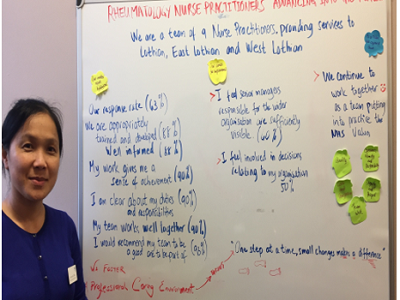 RHEUMATOLOGY NURSE PRACTITIONERS ADVANCING INTO THE
We are a team of 9 Nurse Practitioners, providing services to
Lothian, East Lothian and West Lothian
Our response rate (63%)
We are appropriately
trained and developed (88%)
Well informed (88%)
My work gives me a
sense of achievement (90%)
I am clear about my duties
and responsibilities
My team works well together (90%)
I would recommend my team to be
a good one to be part of
We Foster
Professional Caring Environment
I feel senior managers
responsible for the wider
organisation are sufficiently
visible
I feel involved in decisions
relating to my organisation
50%
We continue to
work together
as a team putting
into practice the
NHS Values
"One step at a time, small changes makes a difference"